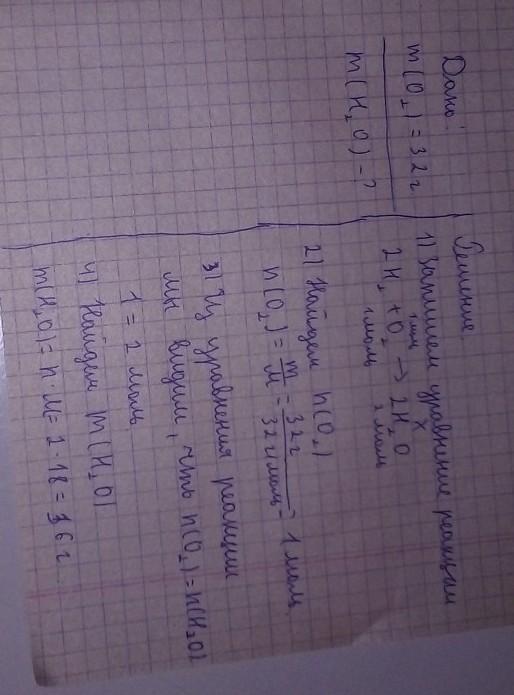 Дано:
m(O₂) = 32 г.
m(H₂O) - ?
Решение.
1) Запишем уравнение реакции
1 моль x
2H₂ + O₂ → 2H₂O
1 моль 2 моль
2) Найдем n(O₂)
n(O₂) = m/M = 32 г / 32 г/моль = 1 моль.
3) Из уравнения реакции
мы видим, что n(O₂) = n(H₂O)
1 = 2 моль.
4) Найдем m(H₂O)
m(H₂O) = n · M = 2 · 18 = 36 г.